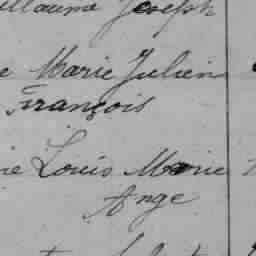 illaume Joseph
e Marie Julien
François
ie Louis Marie
Ange